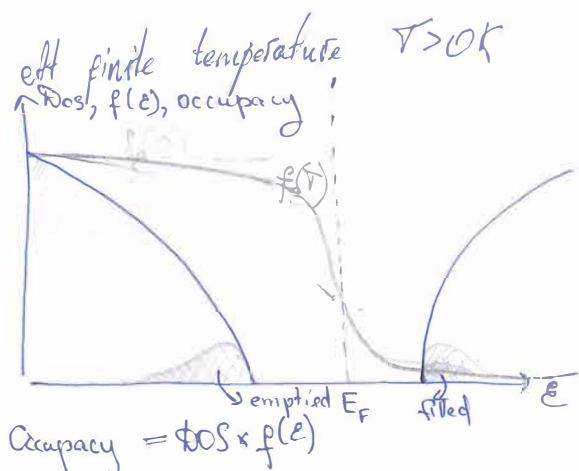 at finite temperature T>0K
DOS, f(ε), occupacy
f(T)
emptied E_F filled ε
Occupacy = DOS × f(ε)